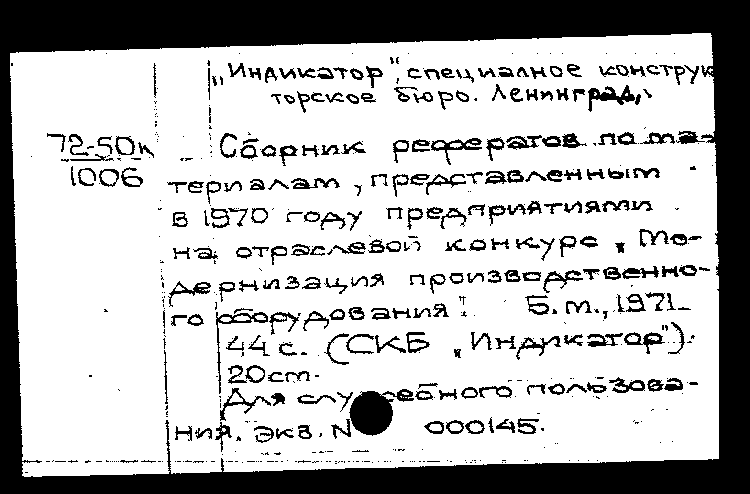 „Индикатор", специалное конструк
торское бюро. Ленинград.
72-50к Сборник рефератов по ма-
1006 териалам, представленным
в 1970 году предприятиями
на отраслевой конкурс „Мо-
дернизация производственно-
го оборудования". Б.м., 1971.
44 с. (СКБ „Индикатор").
20 cm.
Для служебного пользова-
ния. Экз. N 000145.